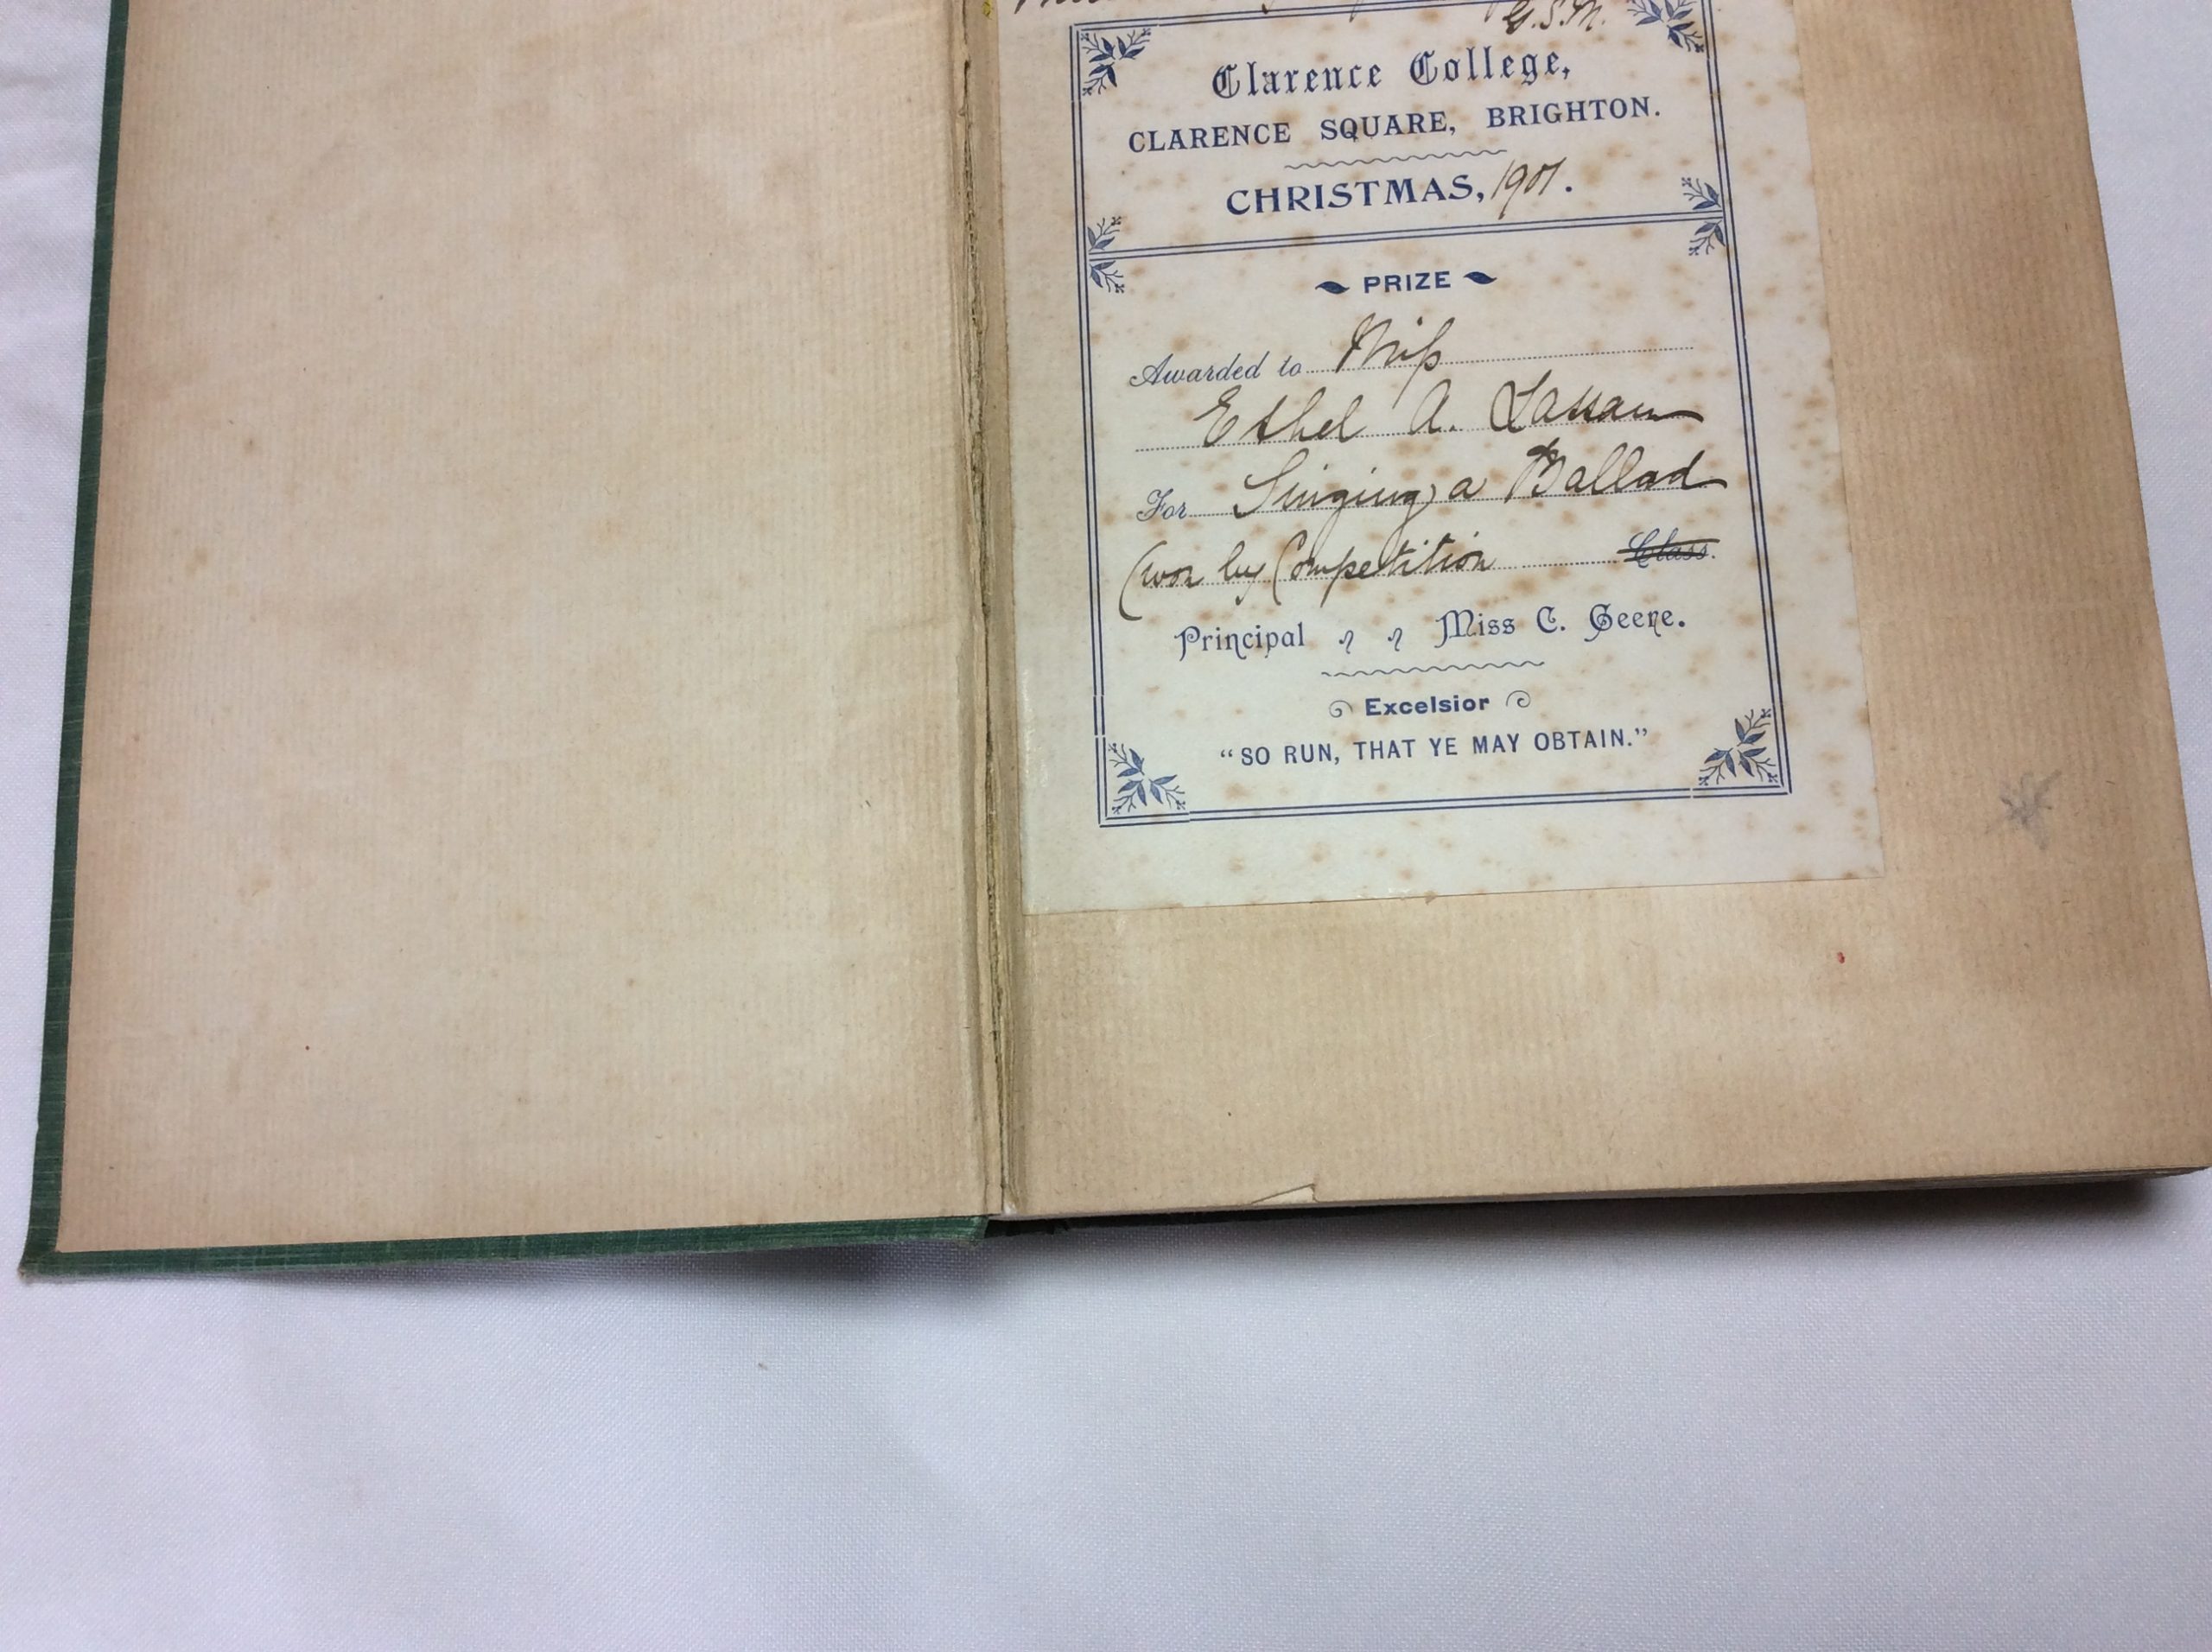 G.S.M.
Clarence College,
CLARENCE SQUARE, BRIGHTON.
CHRISTMAS, 1901.
PRIZE
Awarded to Miss
Ethel A.
For Singing a Ballad
(won by Competition Class.
Principal Miss C. Geere.
Excelsior
"SO RUN, THAT YE MAY OBTAIN."